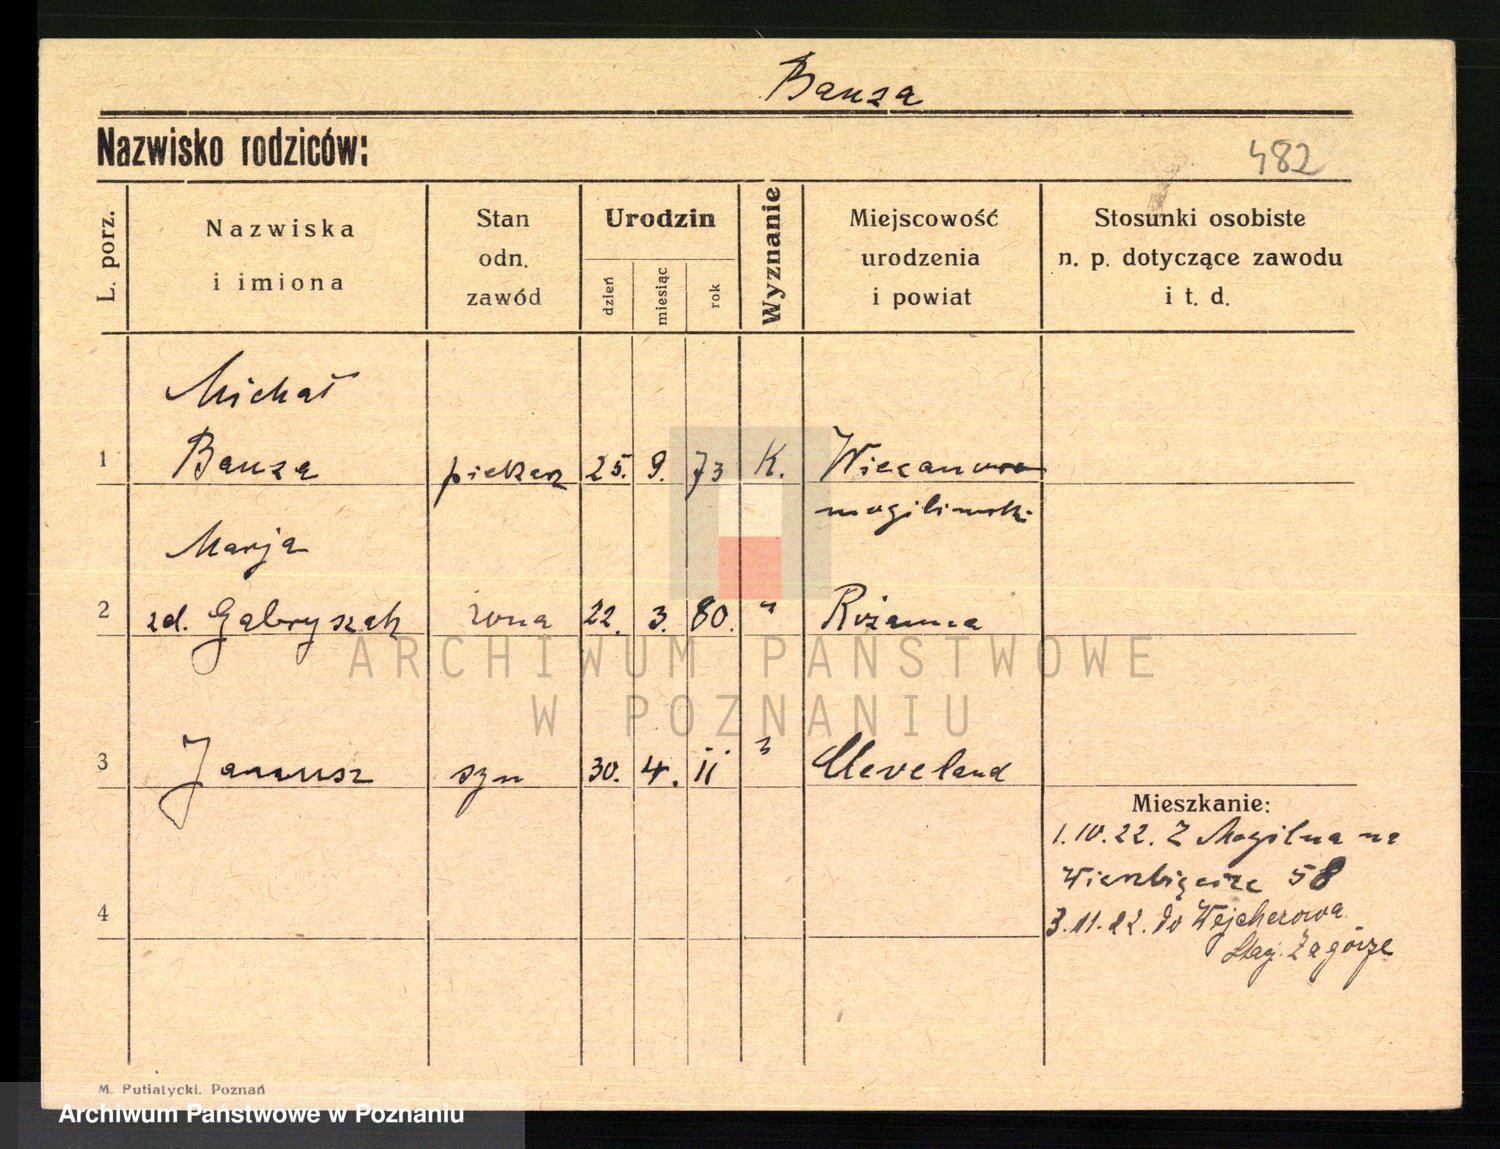 Banza
Nazwisko rodziców:
482
L. porz.
Nazwiska
i imiona
Stan
odn.
zawód
Urodzin
dzień
miesiąc
rok
Wyznanie
Miejscowość
urodzenia
i powiat
Stosunki osobiste
n. p. dotyczące zawodu
i t. d.
Michał
1 Banza piekarz 25. 9. 73 K. Wiecanowo
mogilnicki
Marja
2 zd. Gabryszak żona 22. 3. 80. " Różanna
3 Janusz syn 30. 4. 11 " Cleveland
Mieszkanie:
1.10.22. Z Mogilna na
Wierzbięcice 58
4
3.11.22. do Wejherowa
Zagórze
ARCHIWUM PAŃSTWOWE
W POZNANIU
M. Putiatycki. Poznań
Archiwum Państwowe w Poznaniu